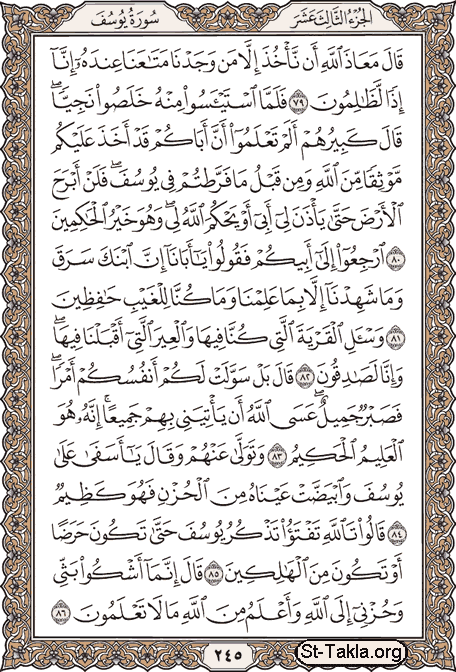 الجزء الثالث عشر
سورة يوسف
قَالَ مَعَاذَ ٱللَّهِ أَن نَّأْخُذَ إِلَّا مَن وَجَدْنَا مَتَٰعَنَا عِندَهُۥٓ إِنَّآ
إِذًا لَّظَٰلِمُونَ ٧٩ فَلَمَّا ٱسْتَيْـَٔسُوا۟ مِنْهُ خَلَصُوا۟ نَجِيًّا ۖ
قَالَ كَبِيرُهُمْ أَلَمْ تَعْلَمُوٓا۟ أَنَّ أَبَاكُمْ قَدْ أَخَذَ عَلَيْكُم
مَّوْثِقًا مِّنَ ٱللَّهِ وَمِن قَبْلُ مَا فَرَّطتُمْ فِى يُوسُفَ ۖ فَلَنْ أَبْرَحَ
ٱلْأَرْضَ حَتَّىٰ يَأْذَنَ لِىٓ أَبِىٓ أَوْ يَحْكُمَ ٱللَّهُ لِى ۖ وَهُوَ خَيْرُ ٱلْحَٰكِمِينَ
٨٠ ٱرْجِعُوٓا۟ إِلَىٰٓ أَبِيكُمْ فَقُولُوا۟ يَٰٓأَبَانَآ إِنَّ ٱبْنَكَ سَرَقَ
وَمَا شَهِدْنَآ إِلَّا بِمَا عَلِمْنَا وَمَا كُنَّا لِلْغَيْبِ حَٰفِظِينَ
٨١ وَسْـَٔلِ ٱلْقَرْيَةَ ٱلَّتِى كُنَّا فِيهَا وَٱلْعِيرَ ٱلَّتِىٓ أَقْبَلْنَا فِيهَا ۖ
وَإِنَّا لَصَٰدِقُونَ ٨٢ قَالَ بَلْ سَوَّلَتْ لَكُمْ أَنفُسُكُمْ أَمْرًا ۖ
فَصَبْرٌ جَمِيلٌ ۖ عَسَى ٱللَّهُ أَن يَأْتِيَنِى بِهِمْ جَمِيعًا ۚ إِنَّهُۥ هُوَ
ٱلْعَلِيمُ ٱلْحَكِيمُ ٨٣ وَتَوَلَّىٰ عَنْهُمْ وَقَالَ يَٰٓأَسَفَىٰ عَلَىٰ
يُوسُفَ وَٱبْيَضَّتْ عَيْنَاهُ مِنَ ٱلْحُزْنِ فَهُوَ كَظِيمٌ
٨٤ قَالُوا۟ تَٱللَّهِ تَفْتَؤُا۟ تَذْكُرُ يُوسُفَ حَتَّىٰ تَكُونَ حَرَضًا
أَوْ تَكُونَ مِنَ ٱلْهَٰلِكِينَ ٨٥ قَالَ إِنَّمَآ أَشْكُوا۟ بَثِّى
وَحُزْنِىٓ إِلَى ٱللَّهِ وَأَعْلَمُ مِنَ ٱللَّهِ مَا لَا تَعْلَمُونَ ٨٦
٢٤٥
St-Takla.org